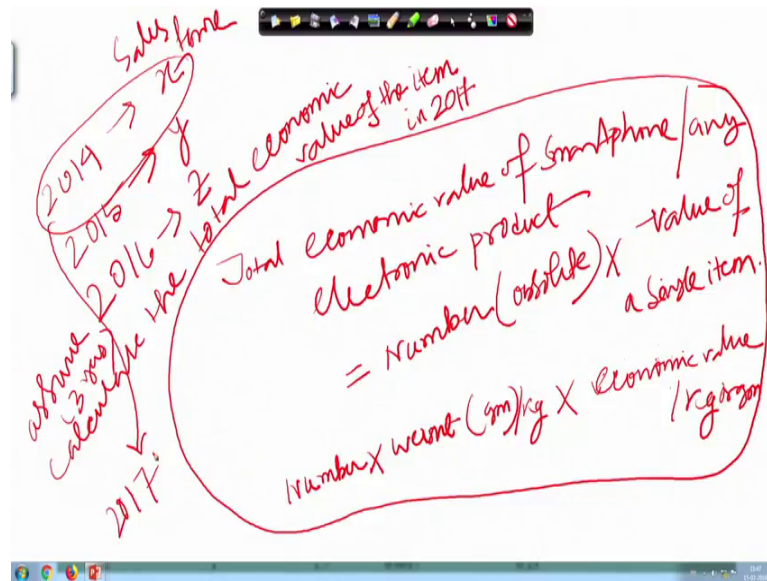 Sales
2014 → x
2015 → y
2016 → z
assume
calculate the total economic
value of the item
in 2017
2017
Total economic value of Smartphone / any
electronic product
= Number (obsolite) X value of
a single item.
Number X weight (gm)/kg X economic value
/kg or gm